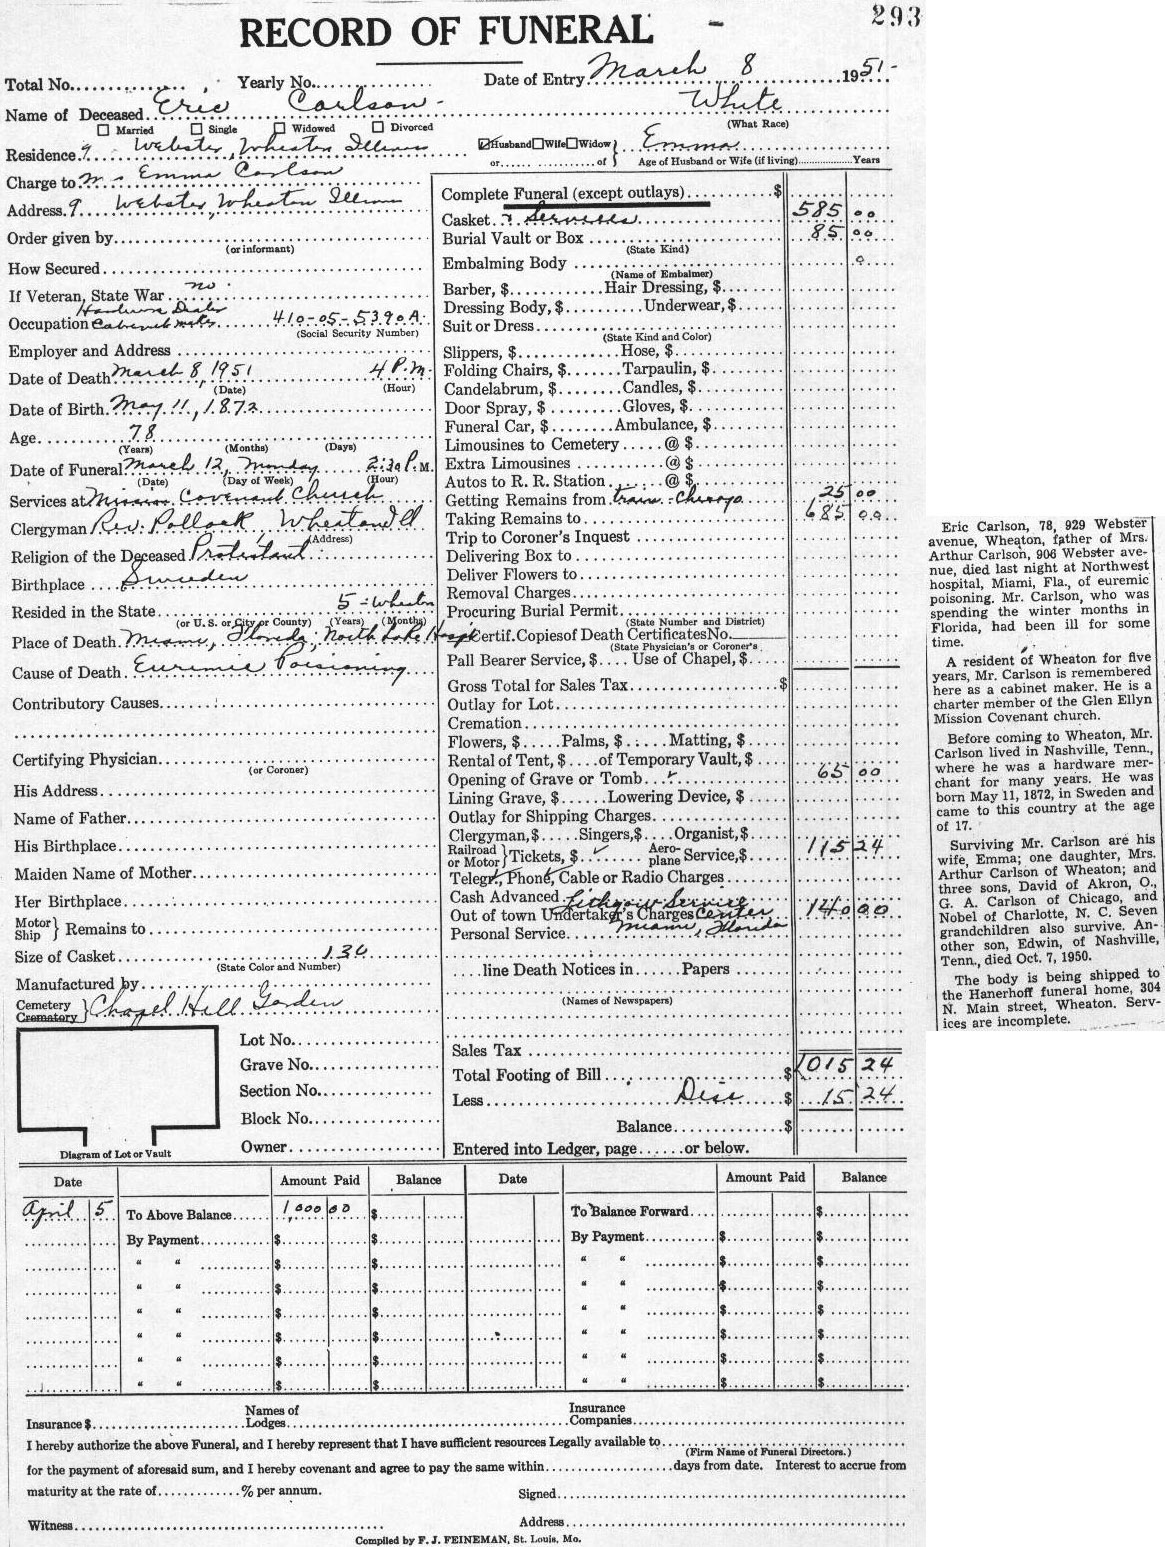 293
RECORD OF FUNERAL
Total No. Yearly No. Date of Entry March 8 1951-
Name of Deceased Eric Carlson - White
Married Single Widowed Divorced (What Race)
Residence 9 Webster, Wheaton Illinois Husband Wife Widow or of } Emma
Age of Husband or Wife (if living) Years
Charge to Mrs Emma Carlson
Address 9 Webster, Wheaton Illinois
Order given by
(or informant)
How Secured
If Veteran, State War no
Hardware Dealer
Occupation Cabinet maker 410-05-5390A
(Social Security Number)
Employer and Address
Date of Death March 8, 1951 4 P.M.
(Date) (Hour)
Date of Birth May 11, 1872
Age 78
(Years) (Months) (Days)
Date of Funeral March 12, Monday 2:30 P.M.
(Date) (Day of Week) (Hour)
Services at Mission Covenant Church
Clergyman Rev. Pollock, Wheaton Ill
(Address)
Religion of the Deceased Protestant
Birthplace Sweden
Resided in the State 5 - Wheaton
(or U. S. or City or County) (Years) (Months)
Place of Death Miami, Florida; North Lake Hosp
Cause of Death Euremic Poisioning
Contributory Causes
Certifying Physician
(or Coroner)
His Address
Name of Father
His Birthplace
Maiden Name of Mother
Her Birthplace
Motor Ship } Remains to
Size of Casket 136
(State Color and Number)
Manufactured by
Cemetery Crematory } Chapel Hill Garden
Lot No.
Grave No.
Section No.
Block No.
Owner
Diagram of Lot or Vault
Complete Funeral (except outlays) $
Casket & Services 585 00
Burial Vault or Box 85 00
(State Kind)
Embalming Body 0
(Name of Embalmer)
Barber, $ Hair Dressing, $
Dressing Body, $ Underwear, $
Suit or Dress
(State Kind and Color)
Slippers, $ Hose, $
Folding Chairs, $ Tarpaulin, $
Candelabrum, $ Candles, $
Door Spray, $ Gloves, $
Funeral Car, $ Ambulance, $
Limousines to Cemetery @ $
Extra Limousines @ $
Autos to R. R. Station @ $
Getting Remains from trans - Chicago 25 00
Taking Remains to 685 00
Trip to Coroner's Inquest
Delivering Box to
Deliver Flowers to
Removal Charges
Procuring Burial Permit
(State Number and District)
Certif. Copies of Death Certificates No.
(State Physician's or Coroner's
Pall Bearer Service, $ Use of Chapel, $
Gross Total for Sales Tax $
Outlay for Lot
Cremation
Flowers, $ Palms, $ Matting, $
Rental of Tent, $ of Temporary Vault, $
Opening of Grave or Tomb 65 00
Lining Grave, $ Lowering Device, $
Outlay for Shipping Charges
Clergyman, $ Singers, $ Organist, $
Railroad or Motor } Tickets, $ Aeroplane Service, $ 115 24
Telegr., Phone, Cable or Radio Charges
Cash Advanced Lithgow Service
Out of town Undertaker's Charges Center 140 00
Personal Service Miami, Florida
line Death Notices in Papers
(Names of Newspapers)
Sales Tax
Total Footing of Bill $ 1015 24
Less Disc $ 15 24
Balance $
Entered into Ledger, page or below.
Date Amount Paid Balance Date Amount Paid Balance
April 5 To Above Balance 1,000 00 $ To Balance Forward $
By Payment $ $ By Payment $ $
" " $ $ " " $ $
" " $ $ " " $ $
" " $ $ " " $ $
" " $ $ " " $ $
" " $ $ " " $ $
" " $ $ " " $ $
Insurance $ Names of Lodges Insurance Companies
I hereby authorize the above Funeral, and I hereby represent that I have sufficient resources Legally available to
(Firm Name of Funeral Directors.)
for the payment of aforesaid sum, and I hereby covenant and agree to pay the same within days from date. Interest to accrue from
maturity at the rate of % per annum. Signed
Witness Address
Compiled by F. J. FEINEMAN, St. Louis, Mo.
Eric Carlson, 78, 929 Webster
avenue, Wheaton, father of Mrs.
Arthur Carlson, 906 Webster ave-
nue, died last night at Northwest
hospital, Miami, Fla., of euremic
poisoning. Mr. Carlson, who was
spending the winter months in
Florida, had been ill for some
time.
A resident of Wheaton for five
years, Mr. Carlson is remembered
here as a cabinet maker. He is a
charter member of the Glen Ellyn
Mission Covenant church.
Before coming to Wheaton, Mr.
Carlson lived in Nashville, Tenn.,
where he was a hardware mer-
chant for many years. He was
born May 11, 1872, in Sweden and
came to this country at the age
of 17.
Surviving Mr. Carlson are his
wife, Emma; one daughter, Mrs.
Arthur Carlson of Wheaton; and
three sons, David of Akron, O.,
G. A. Carlson of Chicago, and
Nobel of Charlotte, N. C. Seven
grandchildren also survive. An-
other son, Edwin, of Nashville,
Tenn., died Oct. 7, 1950.
The body is being shipped to
the Hanerhoff funeral home, 304
N. Main street, Wheaton. Serv-
ices are incomplete.